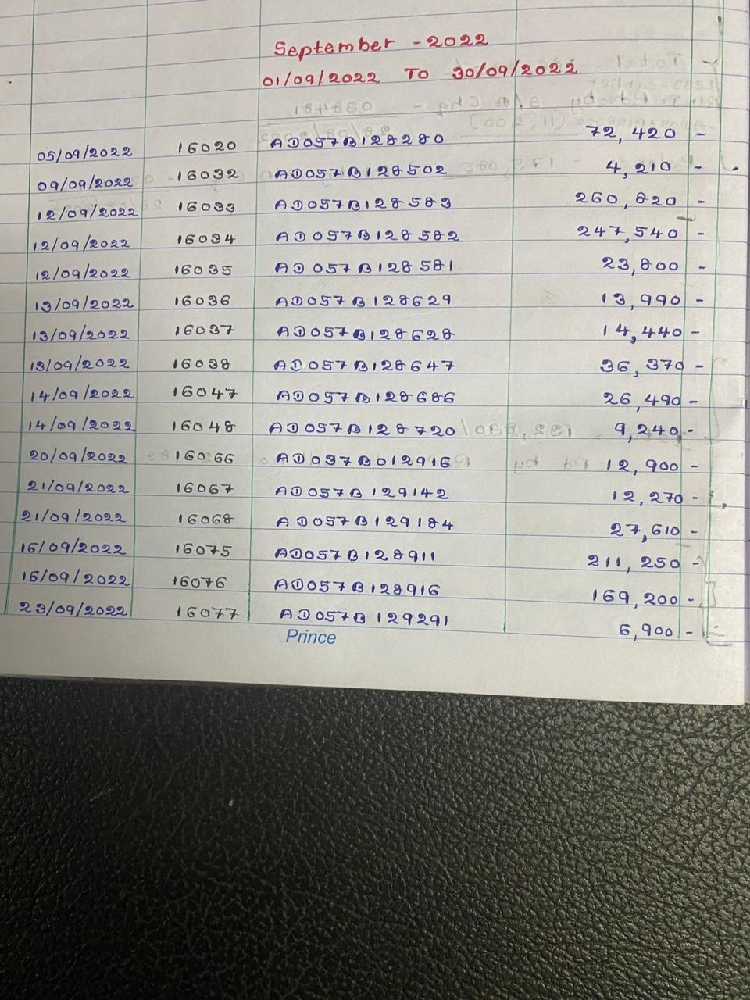 September - 2022
01/09/2022 TO 30/09/2022
05/09/2022 16020 AD057B128280 72,420 -
09/09/2022 16032 AD057B128502 4,210 -
12/09/2022 16033 AD057B128583 260,820 -
12/09/2022 16034 AD057B128582 247,540 -
12/09/2022 16035 AD057B128581 23,800 -
13/09/2022 16036 AD057B128629 13,990 -
13/09/2022 16037 AD057B128628 14,440 -
13/09/2022 16038 AD057B128647 36,370 -
14/09/2022 16047 AD057B128686 26,490 -
14/09/2022 16048 AD057B128720 9,240 -
20/09/2022 16066 AD037B012916 12,900 -
21/09/2022 16067 AD057B129142 12,270 -
21/09/2022 16068 AD057B129184 27,610 -
16/09/2022 16075 AD057B128911 211,250 -
16/09/2022 16076 AD057B128916 169,200 -
23/09/2022 16077 AD057B129291 6,900 -
Prince